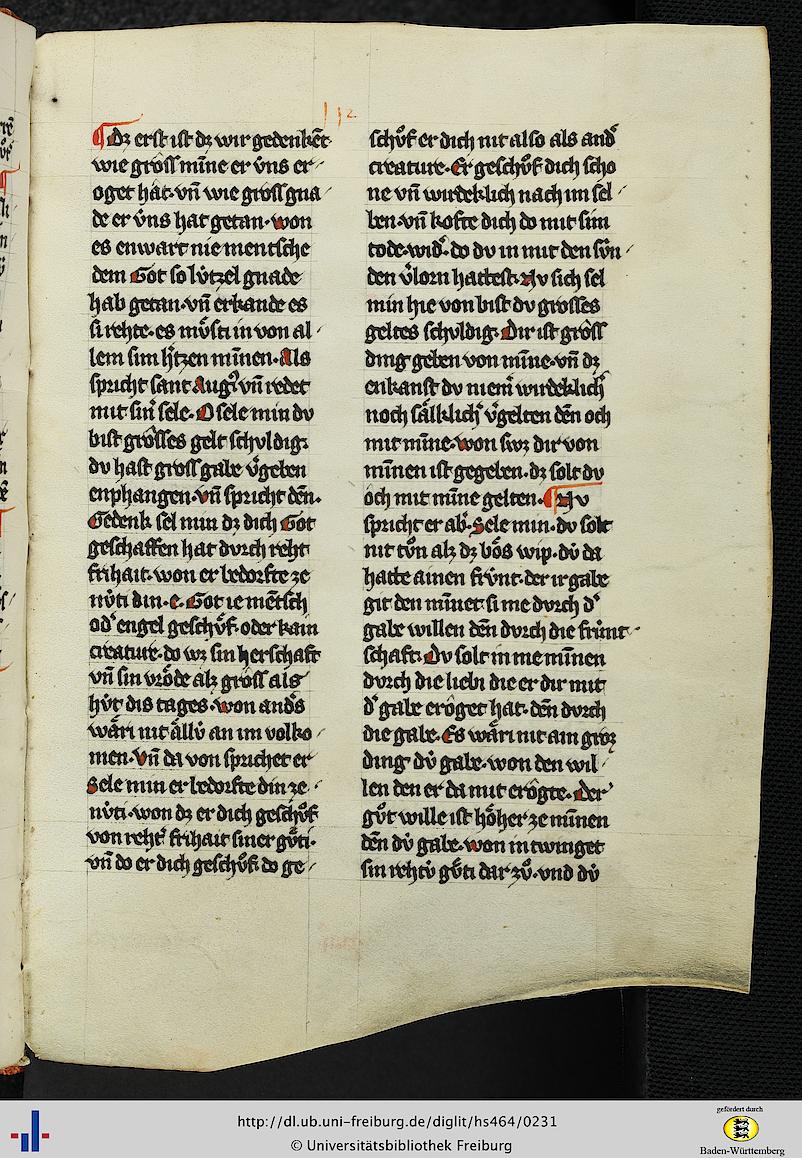 112
¶ Dz erst ist dz wir gedenkēt
wie gross mīne er v́ns er
oget hat. vn̄ wie gross gna
de er v́ns hat getan. won
es enwart nie mentsche
dem Got so lv́tzel gnade
hab getan. vn̄ erkande es
si rehte. es mv̊sti in von al
lem sim h'tzen mīnen. Als
spricht sant Aug9 vn̄ redet
mit sin' sele. O sele min dv
bist grosses gelt schvldig.
dv hast gross gabe v'geben
enphangen. vn̄ spricht dēn.
Gedenk sel min dz dich Got
geschaffen hat dvrch reht
frihait. won er bedorfte ze
nv́ti din. e. Got ie mētsch
od' engel geschv̊f. oder kain
creatur. do wz sin herschaft
vn̄ sin vrŏde alz gross als
hv́t dis tages. won and's
wări nit ăllv́ an im volko
men. Vn̄ da von sprichet er
Sele min er bedorfte din ze
nv́ti. won dz er dich geschv̊f
von reht' frihait siner gv̊ti.
vn̄ do er dich geschv̊f. do ge
schv̊f er dich nit also als and'
creature. Er geschv̊f dich scho
ne vn̄ wirdeklich nach im sel
ben. vn̄ kofte dich do mit sim
tode. wid'. do dv in mit den sv́n
den v'lorn hattest. Nv sich sel
min hie von bist dv grosses
geltes schvldig. Dir ist gross
ding geben von mīne. vn̄ dz
enkanst dv niem' wirdeklich'
noch sălklich' v'gelten dēn och
mit mīne. won swz dir von
mīnen ist gegeben. dz solt dv
och mit mīne gelten. ¶ Nv
spricht er ab'. Sele min. dv solt
nit tv̊n alz dz bŏs wip. dv́ da
hatte ainen frv́nt. der ir gabe
git den mīnet si me dvrch d'
gabe willen dēn dvrch die frúnt
schaft. Dv solt in me mīnen
dvrch die liebi die er dir mit
d' gabe erŏget hat. dēn dvrch
die gabe. Es wări nit ain groz
ding dv́ gabe. won den wil
len den er da mit erŏgte. Der
gv̊t wille ist hŏher ze mīnen
dēn dv́ gabe. won in twinget
sin rehtv́ gv̊ti dar zv̊. vnd dv́
http://dl.ub.uni-freiburg.de/diglit/hs464/0231
© Universitätsbibliothek Freiburg
gefördert durch
Baden-Württemberg